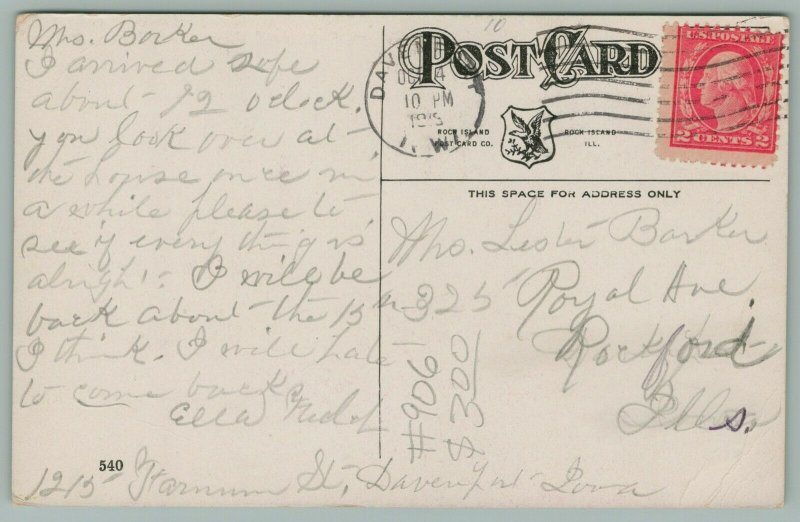 Mrs. Barker
I arrived safe
about 12 oclock.
you look over at
the house once in
a while please to
see if every thing is
alright. I will be
back about the 15th
I think. I will hate
to come back
Ella
1215 Farnum St, Davenport Iowa
540
10
POST CARD
DAVENPORT
10 PM
ROCK ISLAND
POST CARD CO.
ROCK ISLAND
ILL.
U.S. POSTAGE
2 CENTS 2
THIS SPACE FOR ADDRESS ONLY
Mrs. Lester Barker
325 Royal Ave.
Rockford
Ills.
#906
$3.00